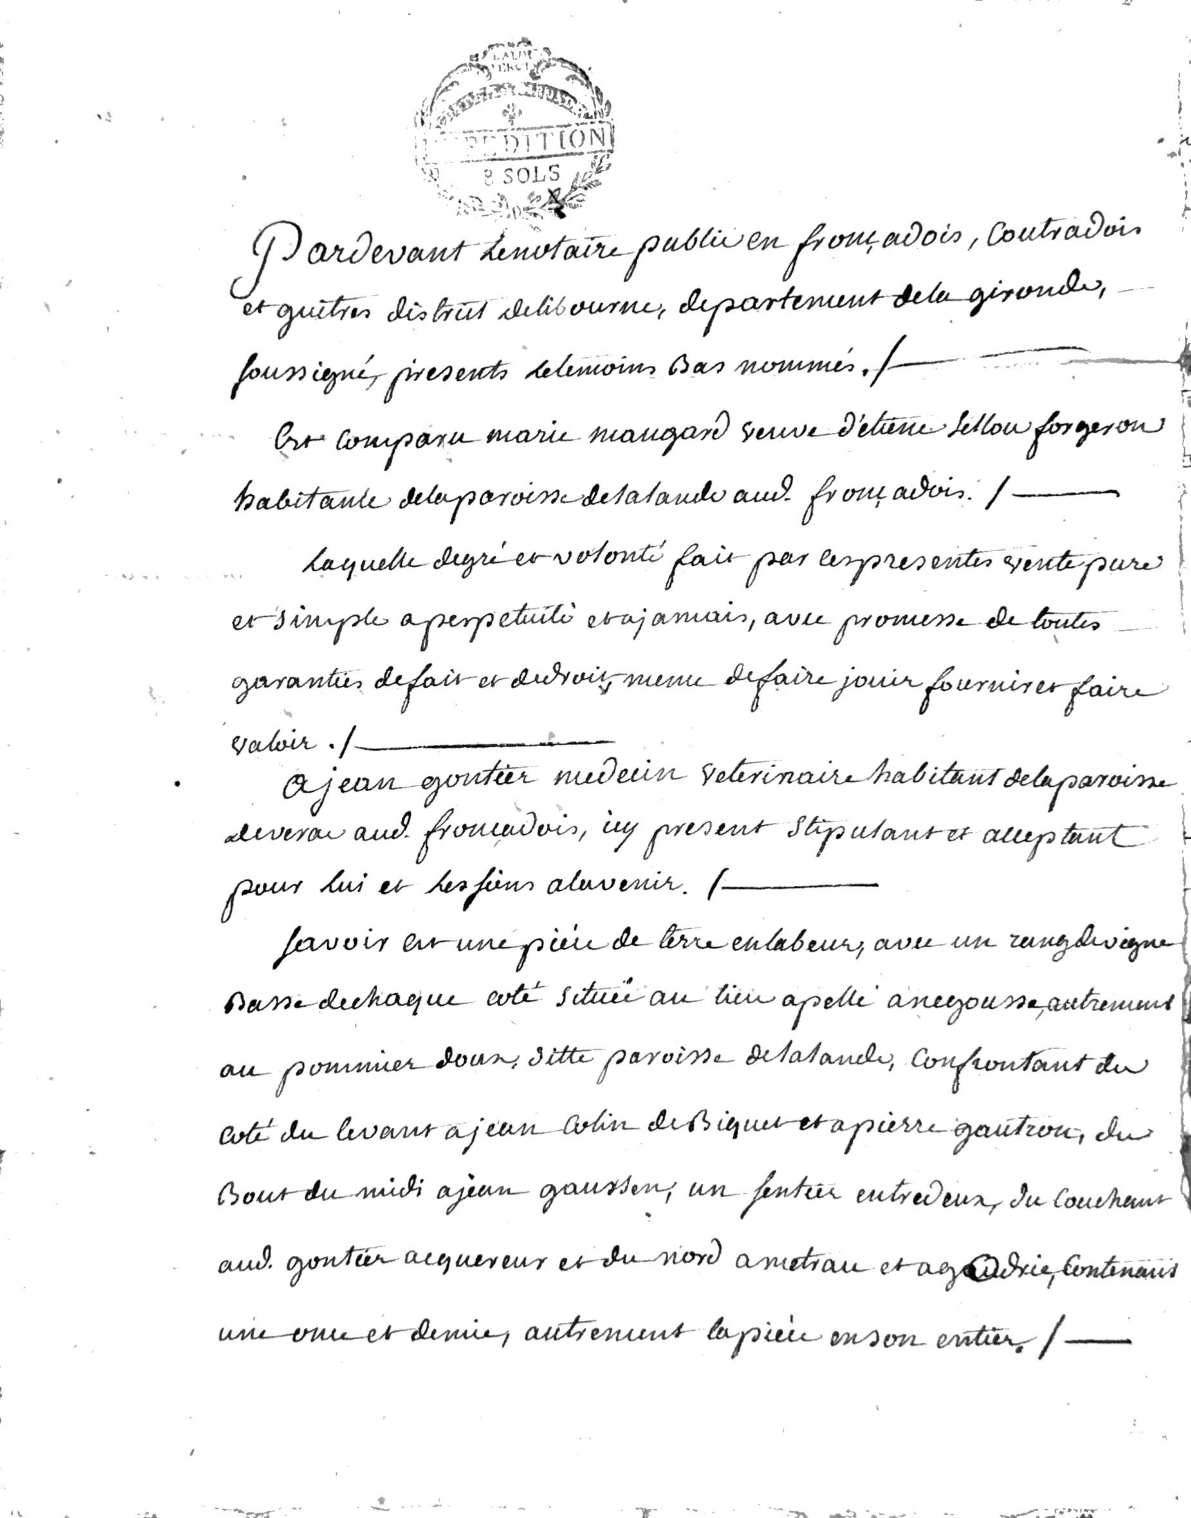 LA LOI
EXPEDITION
8 SOLS
Pardevant le notaire public en fronçadois, Coutradois
et guîtres district de libourne, departement de la gironde,
soussigné, présents les temoins Bas nommés. /
Est comparu marie maugard veuve d'étiene sellou forgeron
habitante de la paroisse de lalande aud. fronçadois. /
laquelle de gré et volonté fait par ces presentes vente pure
et simple a perpetuité et a jamais, avec promesse de toutes
garanties de fait et de droit, meme de faire jouir fournir et faire
valoir. /
A jean gontier medecin veterinaire habitant de la paroisse
de verac aud. fronçadois, icy present stipulant et acceptant
pour lui et les siens a lavenir. /
savoir est une pièce de terre en labeur, avec un rang de vigne
Basse de chaque coté située au lieu apellé a negousse, autrement
au pommier doux, ditte paroisse de lalande, Confrontant du
coté du levant a jean Colin de Biquet et a pierre gautrou, du
Bout du midi a jean gaussen, un sentier entredeux, du Couchant
aud. gontier acquereur et du nord a metrau et a gaudrie, Contenant
une onne et demie, autrement la pièce en son entier. /